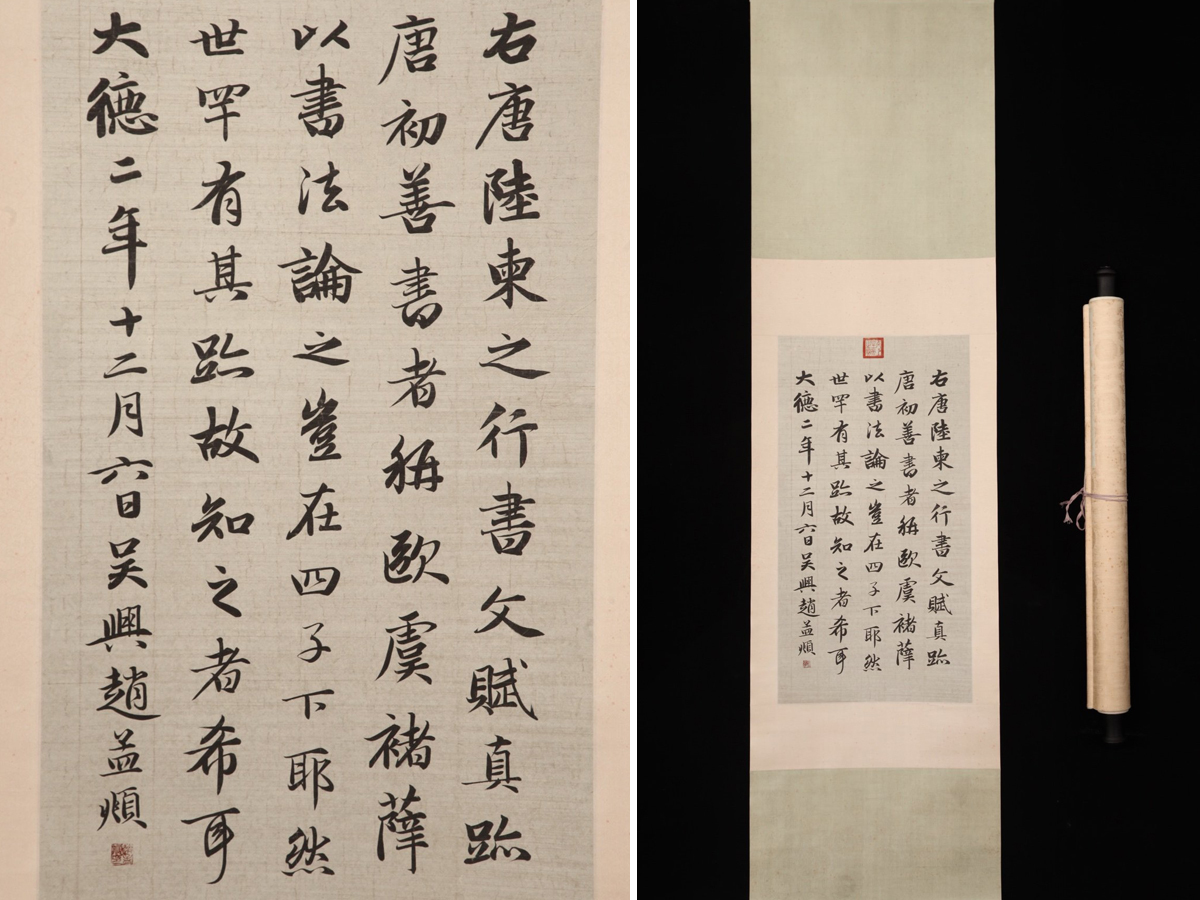 右唐陸柬之行書文賦真跡
唐初善書者稱歐虞褚薛
以書法論之豈在四子下耶然
世罕有其跡故知之者希耳
大德二年十二月六日吳興趙孟頫
右唐陸柬之行書文賦真跡
唐初善書者稱歐虞褚薛
以書法論之豈在四子下耶然
世罕有其跡故知之者希耳
大德二年十二月六日吳興趙孟頫